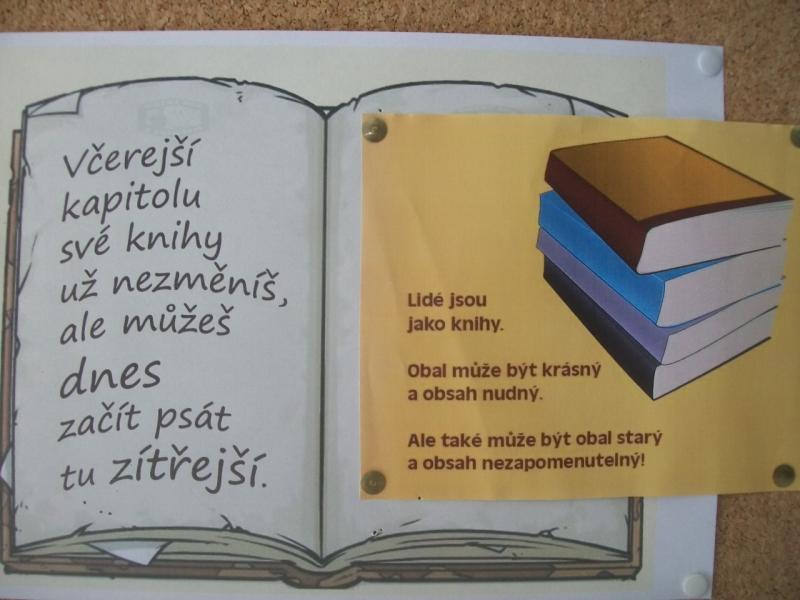 Včerejší
kapitolu
své knihy
už nezměníš,
ale můžeš
dnes
začít psát
tu zítřejší.
Lidé jsou
jako knihy.
Obal může být krásný
a obsah nudný.
Ale také může být obal starý
a obsah nezapomenutelný!